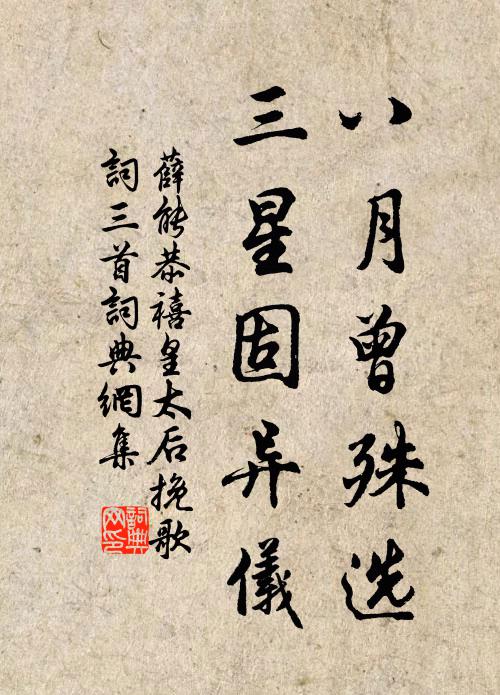 八月曾殊选
三星固异儀
薛能恭禧皇太后挽歌
詞三首詞典網集
詞典网印